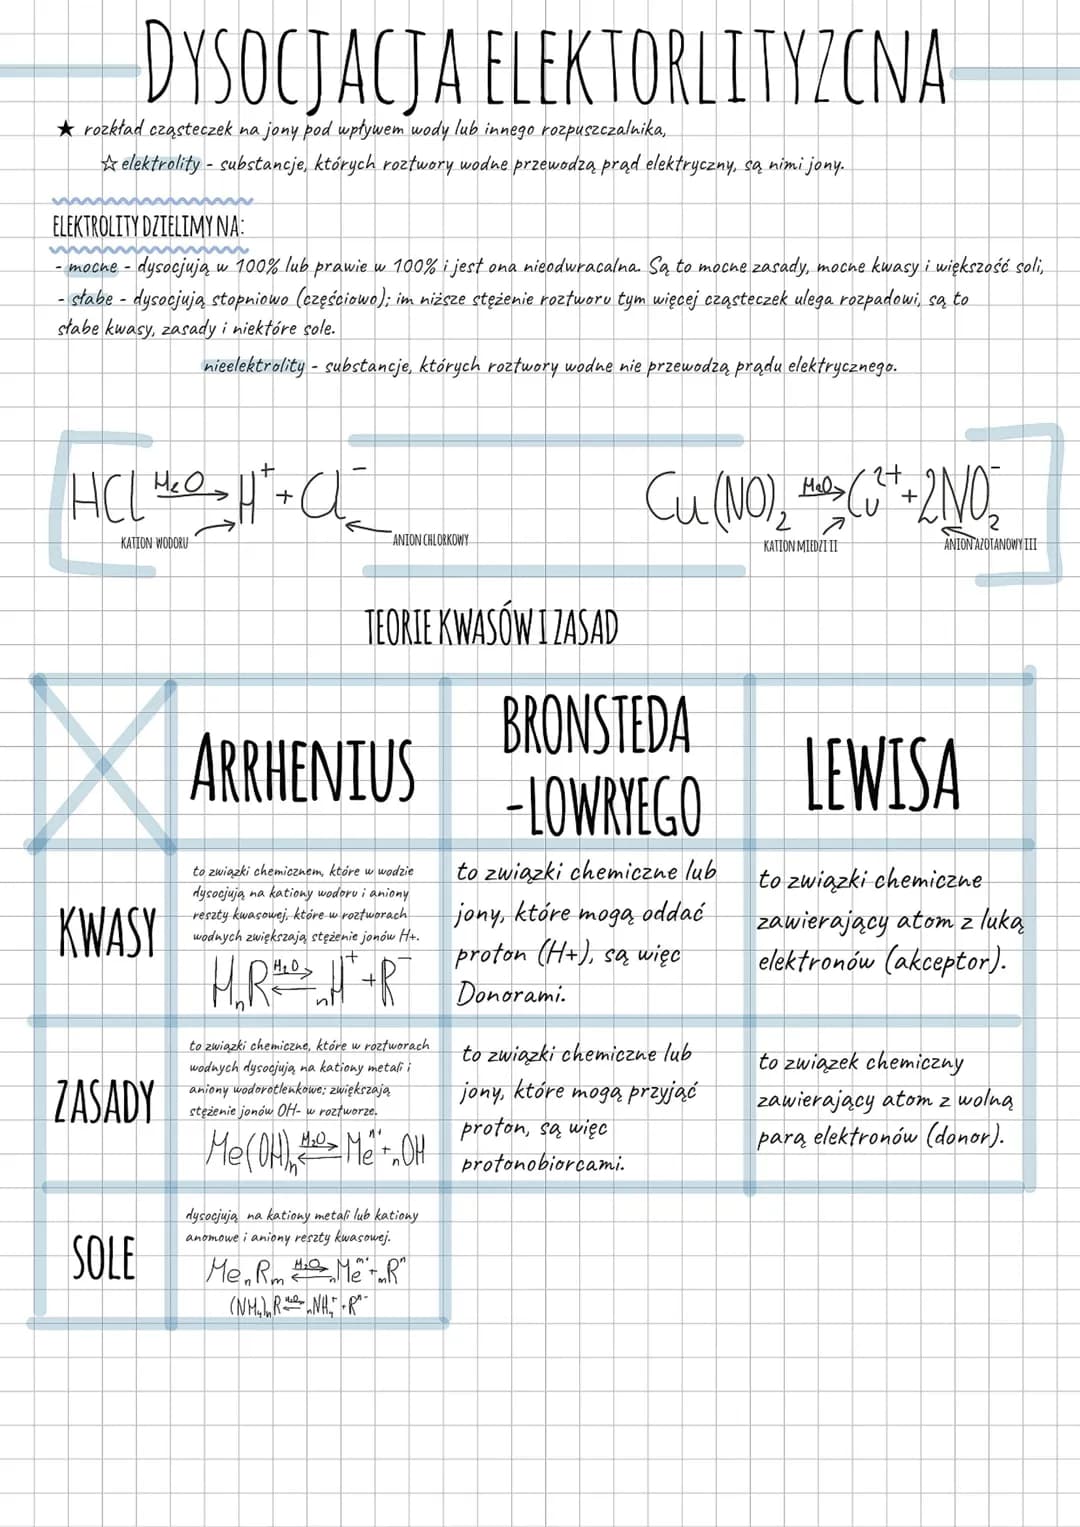 DYSOCJACJA ELEKTORLITYZCNA
★ rozkład cząsteczek na jony pod wpływem wody lub innego rozpuszczalnika,
☆ elektrolity - substancje, których roztwory wodne przewodzą prąd elektryczny, są nimi jony.
ELEKTROLITY DZIELIMY NA:
- mocne - dysocjują w 100% lub prawie w 100% i jest ona nieodwracalna. Są to mocne zasady, mocne kwasy i większość soli,
- słabe - dysocjują stopniowo (częściowo); im niższe stężenie roztworu tym więcej cząsteczek ulega rozpadowi, są to
słabe kwasy, zasady i niektóre sole.
nieelektrolity - substancje, których roztwory wodne nie przewodzą prądu elektrycznego.
HCl H₂O→ H⁺ + Cl⁻
KATION WODORU
ANION CHLORKOWY
Cu(NO)₂ H₂O→ Cu²⁺ + 2NO₂⁻
KATION MIEDZI II
ANION AZOTANOWY III
TEORIE KWASÓW I ZASAD
ARRHENIUS
BRONSTEDA
-LOWRYEGO
LEWISA
KWASY
to związki chemicznem, które w wodzie
dysocjują na kationy wodoru i aniony
reszty kwasowej, które w roztworach
wodnych zwiększają stężenie jonów H+.
HₙR H₂O⇄ ₙH⁺ + R⁻
to związki chemiczne lub
jony, które mogą oddać
proton (H+), są więc
Donorami.
to związki chemiczne
zawierający atom z luką
elektronów (akceptor).
ZASADY
to związki chemiczne, które w roztworach
wodnych dysocjują na kationy metali i
aniony wodorotlenkowe; zwiększają
stężenie jonów OH- w roztworze.
Me(OH)ₙ H₂O⇄ Meⁿ⁺ + ₙOH
to związki chemiczne lub
jony, które mogą przyjąć
proton, są więc
protonobiorcami.
to związek chemiczny
zawierający atom z wolną
parą elektronów (donor).
SOLE
dysocjują na kationy metali lub kationy
anomowe i aniony reszty kwasowej.
MeₙRₘ H₂O⇄ ₙMeᵐ⁺ + ₘRⁿ⁻
(NH₄)ₙR H₂O⇄ ₙNH₄⁺ + Rⁿ⁻